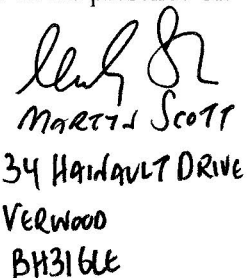 MARTYN SCOTT
34 HAINAULT DRIVE
VERWOOD
BH31 6LE